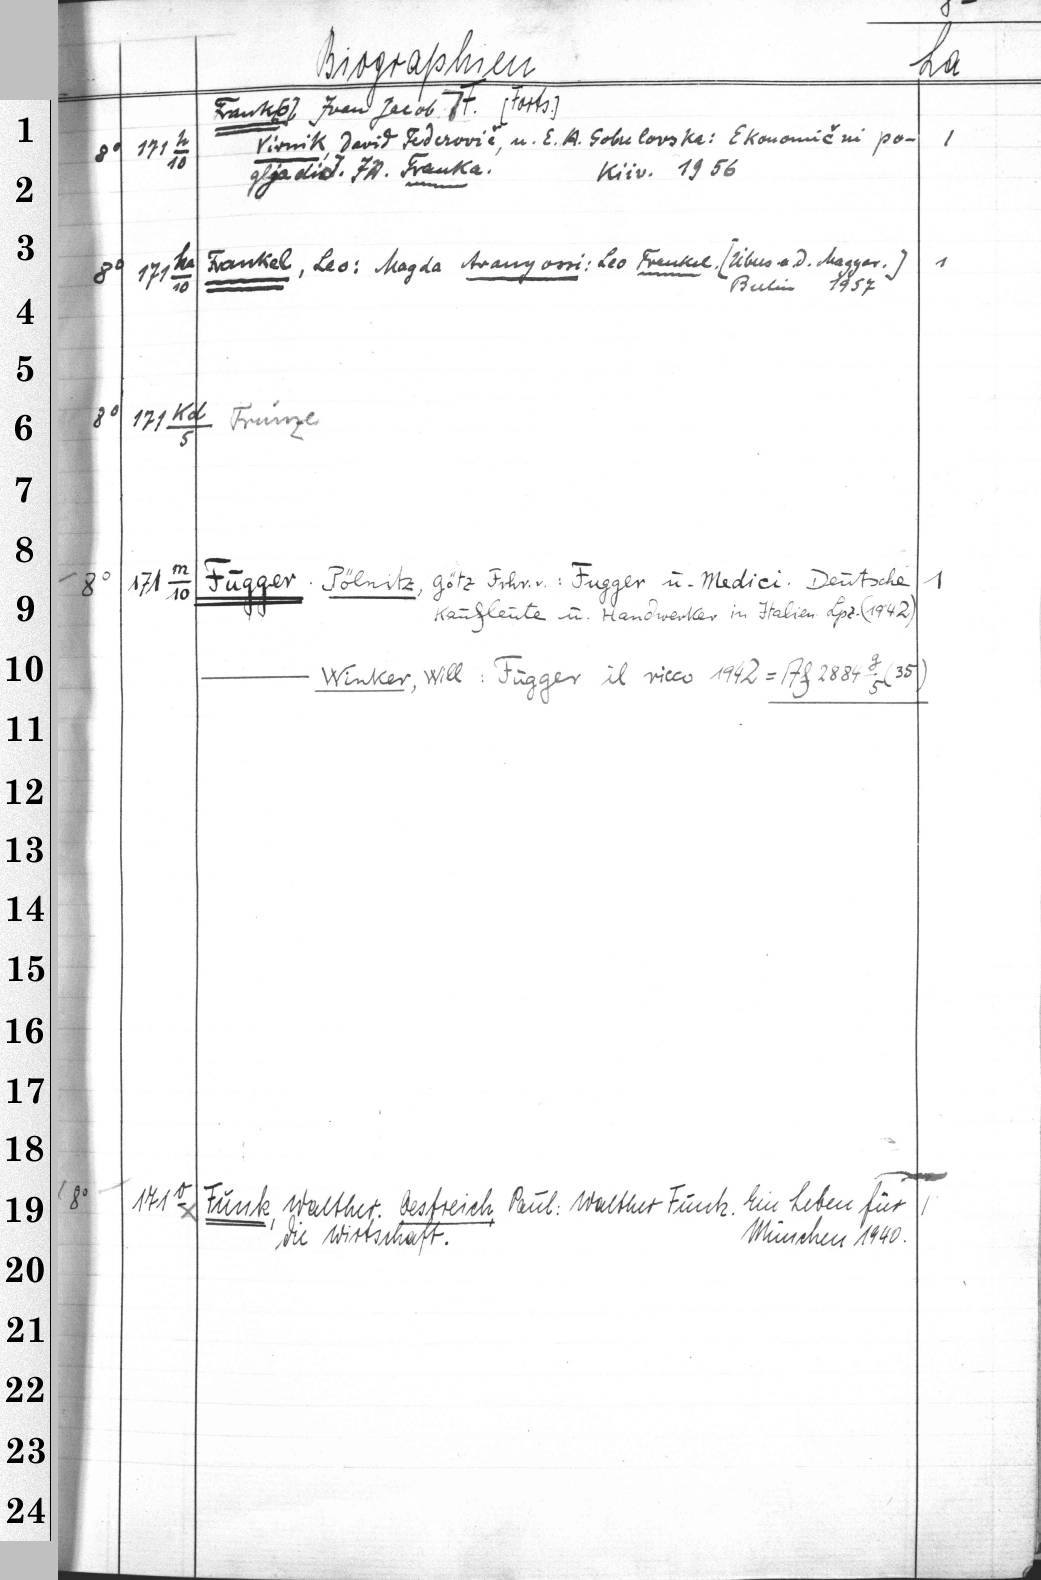 Biographien La
Frank[o], Ivan Jacob [Forts.]
1
8° 171 h/10 Virnik, David Federovič, u. E. A. Gobulovska: Ekonomični po- 1
2
gljadi I. JA. Franka. Kiiv. 1956
3
8° 171 ha/10 Frankel, Leo: Magda Aranyossi: Leo Frankel. [Übers. a. d. Magyar.] 1
Berlin 1957
4
5
6
8° 171 Kd/5 Frunze
7
8
8° 171 m/10 Fugger. Pölnitz, Götz Frhr. v.: Fugger u. Medici. Deutsche 1
9
Kaufleute u. Handwerker in Italien. Lpz. (1942)
10
Winker, Will: Fugger il ricco 1942 = Af 2884 g/5 (35)
11
12
13
14
15
16
17
18
19
8° 171 v/x Funk, Walther. Oestreich, Paul: Walther Funk. Ein Leben für 1
die Wirtschaft. München 1940.
20
21
22
23
24